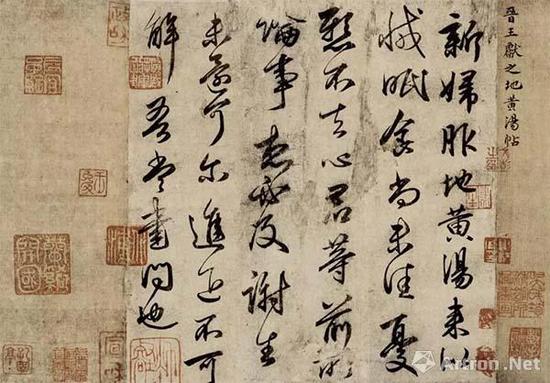 晉王獻之地黃湯帖
新婦服地黃湯來似
減眠食尚未佳憂
懸不去心君等前所
論事想必及謝生
未還可尔進退不可
解吾當書問也
Artron.Net